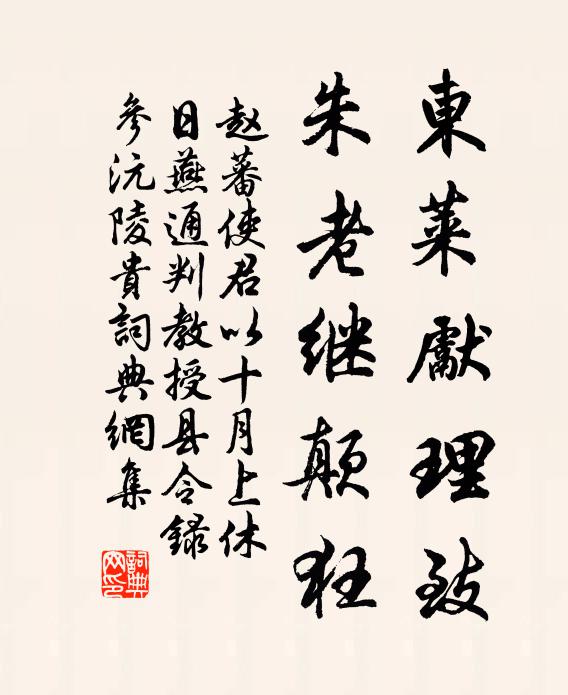 東萊獻理致
朱老继颠狂
赵蕃使君以十月上休
日燕通判教授县令録
參沅陵貴詞典網集
詞典
网印